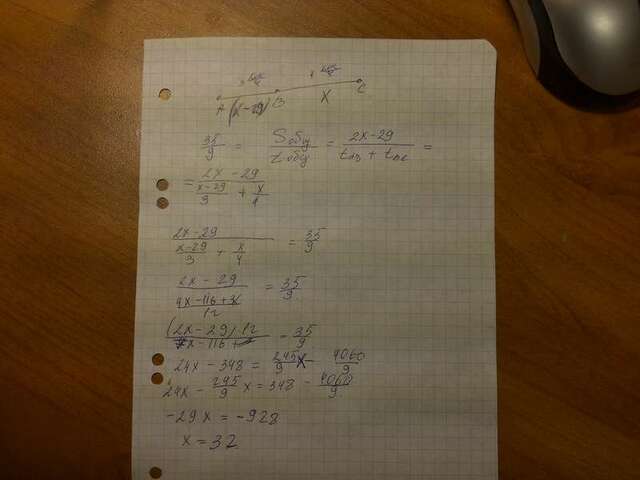 A (x-29) B X C
35/9 = Sобщ/tобщ = 2x-29/tAB + tBC =
= 2x-29/(x-29/3 + x/4)
2x-29/(x-29/3 + x/4) = 35/9
2x-29/(4x-116+3x/12) = 35/9
(2x-29)12/7x-116 = 35/9
24x-348 = 245/9 x - 4060/9
24x - 245/9 x = 348 - 4060/9
-29x = -928
x = 32